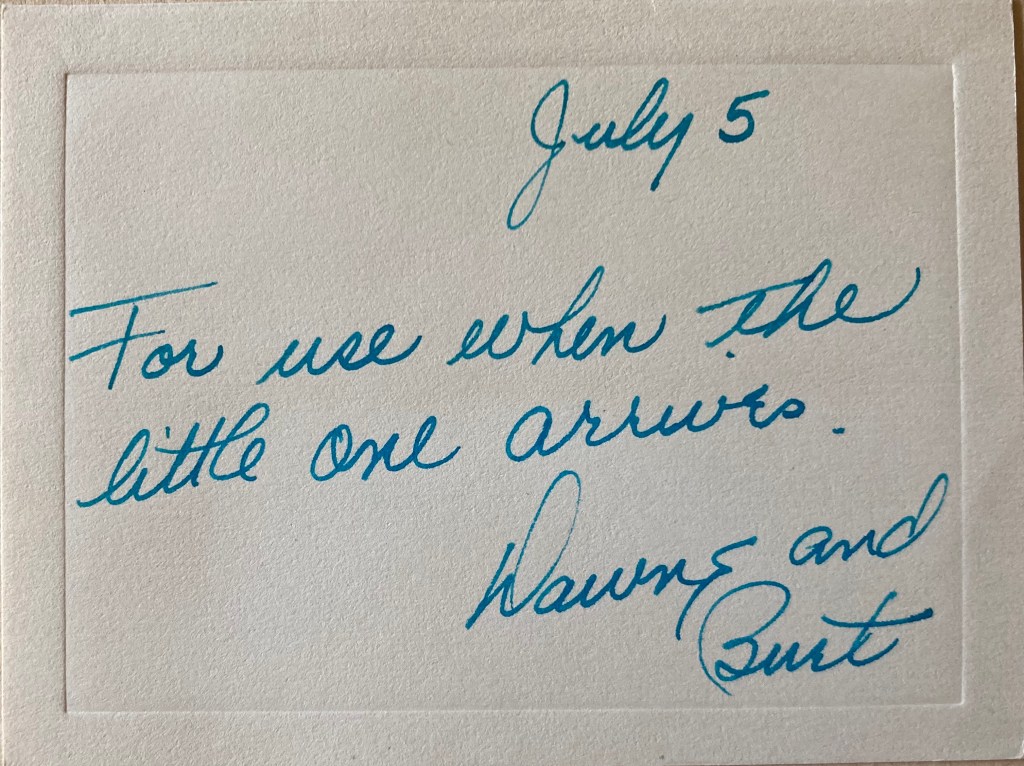 July 5
For use when the
little one arrives.
Dawne and
Burt